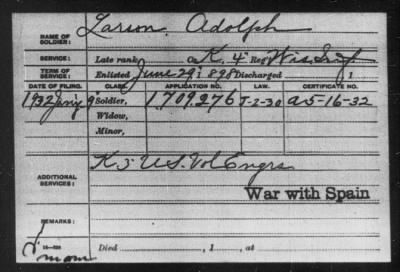 Larson, Adolph
NAME OF SOLDIER:
SERVICE: Late rank, Co. K, 4" Reg't Wis. Inf.
TERM OF SERVICE: Enlisted June 29, 1898 Discharged , 1
DATE OF FILING. CLASS. APPLICATION NO. LAW. CERTIFICATE NO.
1932 Soldier, 1709276 J-2-30 a5-16-32
Widow,
Minor,
K 3" U.S. Vol Engrs
ADDITIONAL SERVICES:
War with Spain
REMARKS:
Died , 1 , at